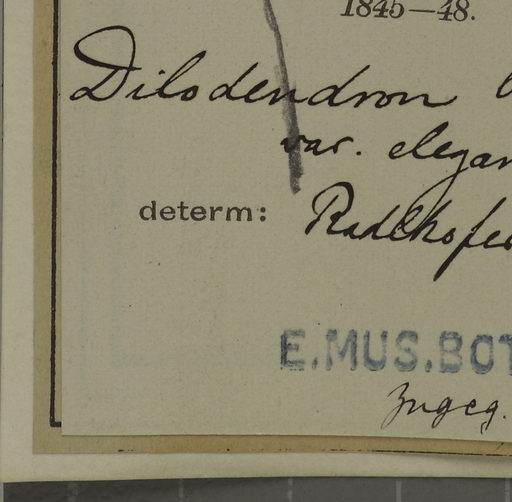 1845—48.
Dilodendron
var. elegan
determ: Radlkofer
E.MUS.BOT
Zugeg.